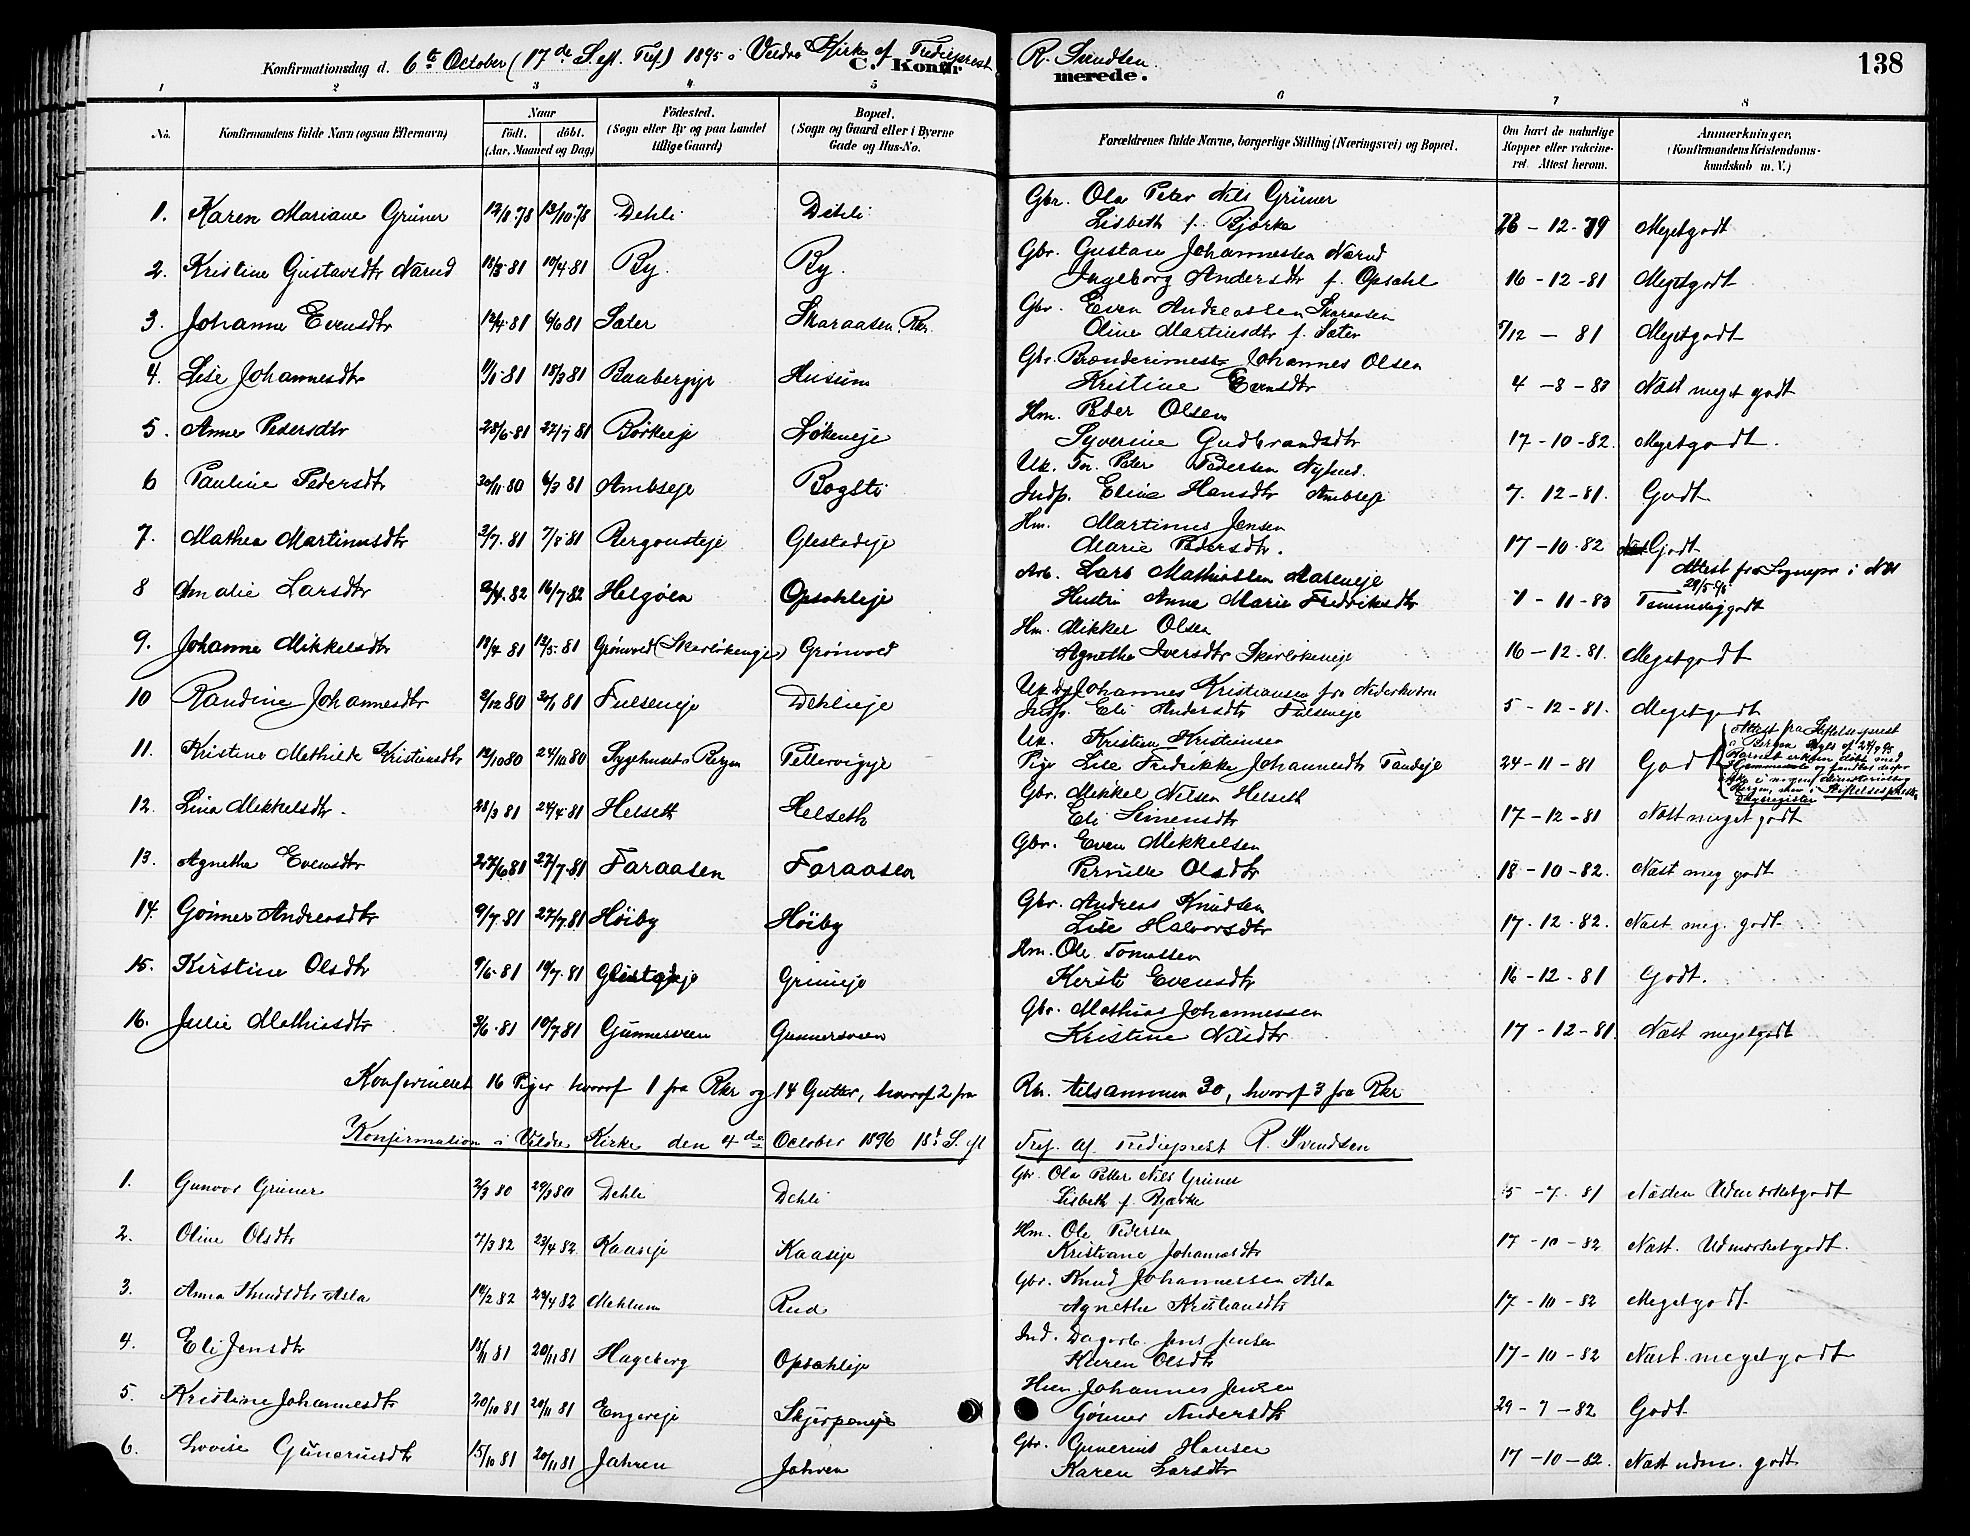 Konfirmationsdag d. 6te October (17de S. eft. Tref) 1895 i Veldre Kirke af Tredieprest R. Svendsen
138
C. Konfir- merede.
1 2 3 4 5 6 7 8
No. Konfirmandens fulde Navn (ogsaa Efternavn) Naar födt. döbt. (Aar, Maaned og Dag) Födested. (Sogn eller By og paa Landet tillige Gaard) Bopæl. (Sogn og Gaard eller i Byerne Gade og Hus-No. Forældrenes fulde Navne, borgerlige Stilling (Næringsvei) og Bopæl. Om havt de naturlige Kopper eller vakcineret. Attest herom. Anmærkninger, (Konfirmandens Kristendomskundskab m. V.)
1. Karen Mariane Grüner 12/8 78 13/10 78 Dehli Dehli Gbr. Ola Peter Nils Grüner
Lisbeth f. Bjørke 28-12-79 Megetgodt
2. Kristine Gustavsdtr Narud 18/3 81 10/4 81 By. By. Gbr. Gustav Johannessen Narud
Ingeborg Andersdtr f. Opsahl 16-12-81 Megetgodt
3. Johanne Evensdtr 12/4 81 6/6 81 Sæter Skaraasen Rkr. Gbr. Even Andreassen Skaraasen
Oline Martinusdtr f. Sæter 5/12 - 81 Megetgodt
4. Lise Johannesdtr 18/3 81 Husum Gbr. Brænderimest. Johannes Olsen
Kristine Evensdtr 4-8-83 Næst meget godt
5. Anne Pedersdtr 28/6 81 27/7 81 Børkeeje Løkeneje Hm. Peder Olsen
Syverine Gudbrandsdtr 17-10-82. Megetgodt.
6 Pauline Pedersdtr 30/11 80 6/3 81 Ambseje Bogsti Uk. Tn. Peter Pedersen Nylund.
Indp. Eline Hansdtr Ambseje 7. 12-81. Godt
7. Mathea Martinusdtr 3/7. 81 7/8 81 Bergousteje Glestadeje Hm. Martinus Jensen
Marie Pedersdtr. 17-10-82 Godt
8 Amalie Larsdtr 2/4. 82 16/7 82 Helgøen Opsahleje Arb. Lars Mathiassen Aaseneje
Hustru Anne Marie Fredriksdtr 7-11-83 Attest fra Sognepr i N.H 29/5 95
Temmeliggodt
9. Johanne Mikkelsdtr 18/4 81 13/5 81 Grønvold (Skarløkeneje) Grønvold Hm. Mikkel Olsen
Agnethe Iversdtr Skarløkeneje 16-12-81. Megetgodt
10 Randine Johannesdtr 2/12 80 30/1 81 Fulseneje Dehlieje Johannes Kristiansen fra Nederkvern
Indp. Eli Andersdtr Fulseneje 5-12-81. Megetgodt
11. Kristine Mathilde Kristiansdtr 12/10 80 24/10 80 Sygehuset i Bergen Pellervigeje Uk. Kristian Kristiansen
Pige Lise Fredrikke Johannesdtr Fandeje 24-11-81 Godt Attest fra Stiftelseprest i Bergen
12. Lina Mikkelsdtr. 28/3 81 24/4 81 Helseth Helseth Gbr. Mikkel Nilsen Helseth
Eli Simensdtr 17-12-81 Næst meget godt
13. Agnethe Evensdtr 27/6 81 27/7 81 Faraasen Faraasen Gbr. Even Mikkelsen
Pernille Olsdtr 18-10-82. Næst meg godt
14. Gønner Andreasdtr 9/7. 81 27/7. 81 Høiby Høiby Gbr. Andreas Knudsen
Lise Halvorsdtr 17-12-82. Næst meg. godt
15. Kirstine Olsdtr 9/6 81 10/7. 81 Glestadeje Grimeje Hm. Ole Tomassen
Kersti Evensdtr 16-12-81 Godt.
16. Julie Mathiasdtr 3/6. 81 10/7 81 Gunnersveen Gunnersveen Gbr. Mathias Johannessen
Kristine Nilsdtr 17-12-81. Næst megetgodt
Konfirmeret 16 Piger hvoraf 1 fra Rkr og 14 Gutter, hvoraf 2 fra Rkr. tilsammen 30, hvoraf 3 fra Rkr
Konfirmation i Veldre Kirke den 4de October 1896 18de S. eft Tref. af Tredieprest R. Svendsen
1. Gunvor Grüner 2/3 80 29/3 80 Dehli Dehli Gbr. Ola Petter Nils Grüner
Lisbeth f. Bjørke 5-7-81 Næsten Udmærketgodt
2. Oline Olsdtr 7/3 82 23/4 82 Kaaseje Kaaseje Hm. Ole Pedersen
Kristiane Johannesdtr 17-10-82 Næst. Udmærketgodt.
3. Anna Knudsdtr Asla 14/2 82 29/4 82 Mehlum Rud Gbr. Knud Johannessen Asla
Agnethe Kristiansdtr 17-10-82 Megetgodt
4. Eli Jensdtr 18/11 81 20/11 81 Hageberg Opsahleje Ind. Dagarb. Jens Jensen
Karen Olsdtr 17-10-82 Næst. megetgodt
5. Kristine Johannesdtr 20/10 81 20/11 81 Engereje Skjerpeneje Hm Johannes Jensen
Gönner Andersdtr 29-7-82 Godt.
6. Lovise Gunerusdtr 15/10 81 20/11 81 Jahren Jahren Gbr. Gunerius Hansen
Karen Larsdtr 17-10-82. Næst udm. godt